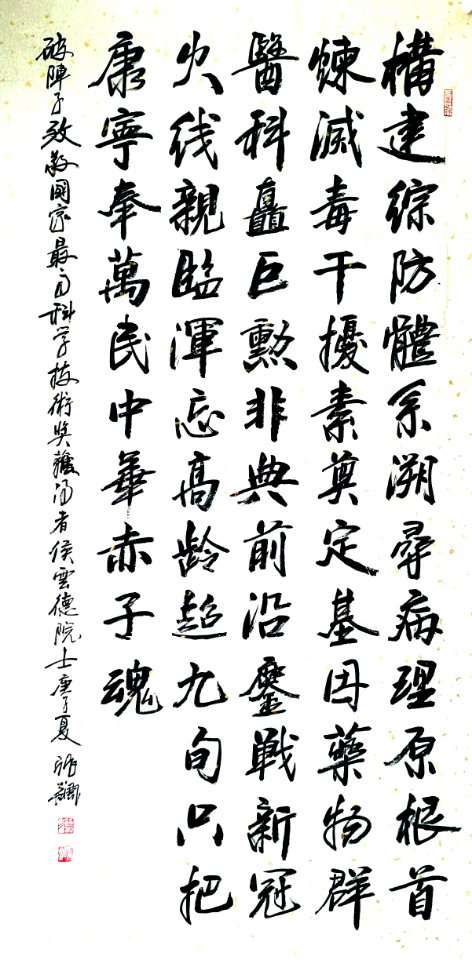 構建綜防體系溯尋病理原根首
煉滅毒干擾素奠定基因藥物群
醫科矗巨勳非典前沿鏖戦新冠
火线親臨渾忘高龄超九旬只把
康寧奉萬民中華赤子魂
破陣子致敬國家最高科学技術奖獲得者侯雲德院士庚子夏